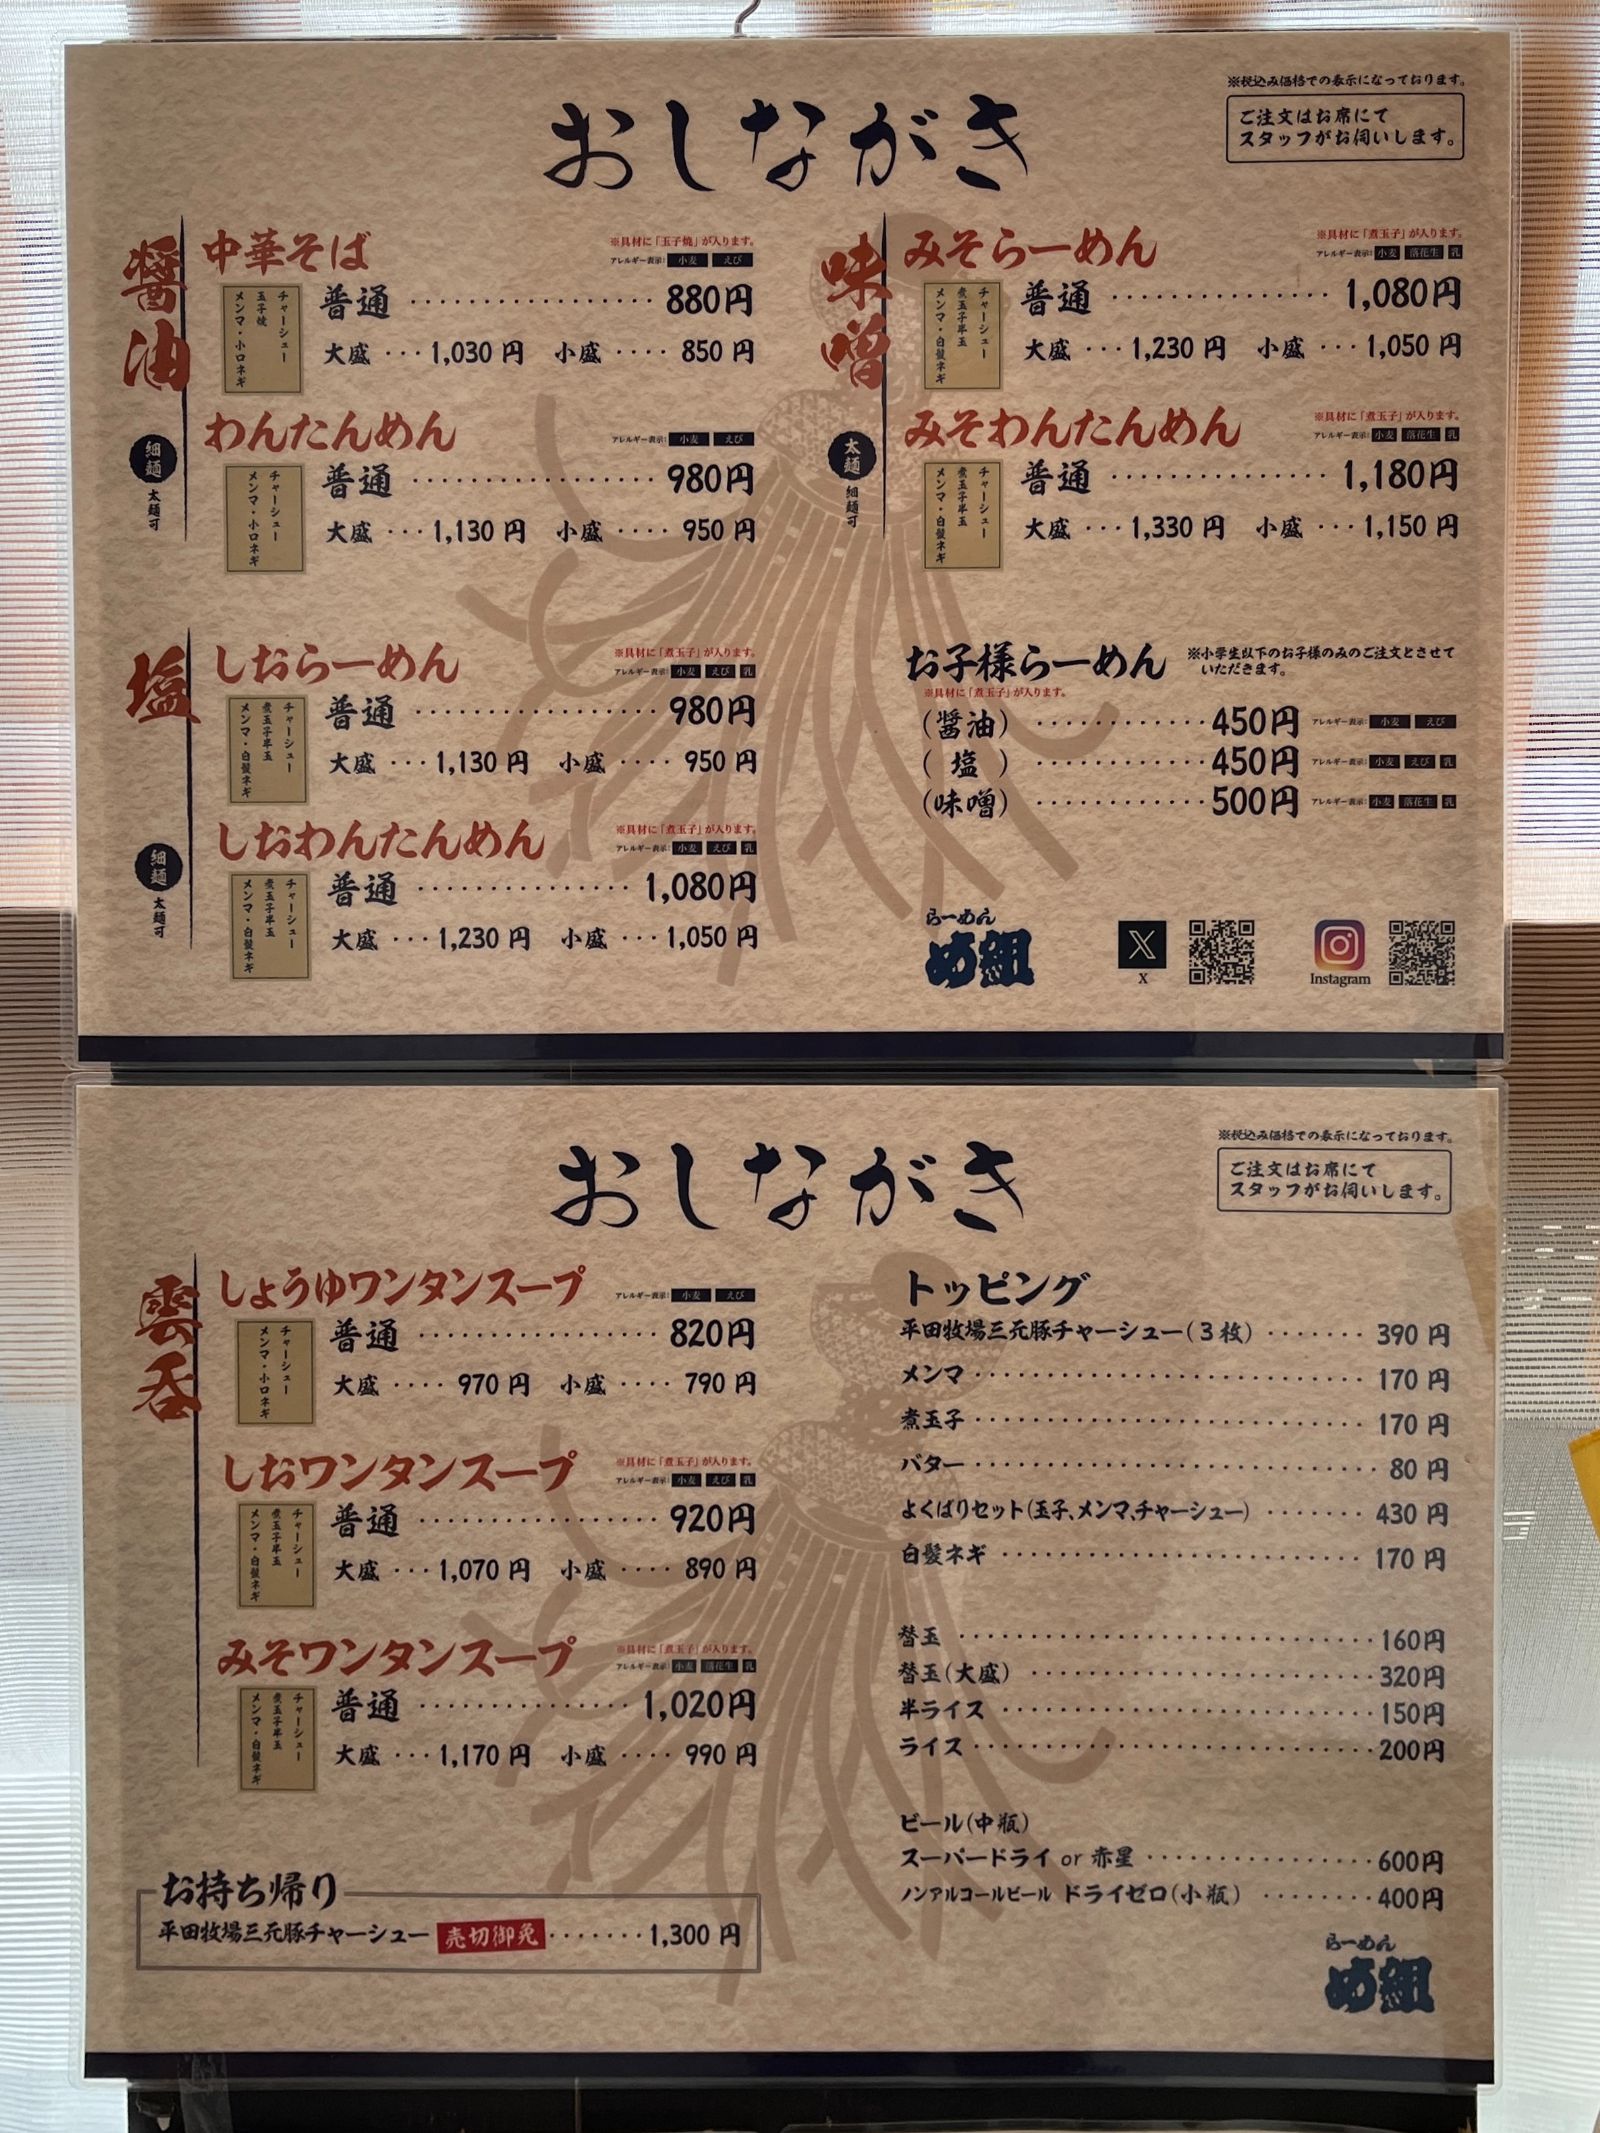 ※税込み価格での表示になっております。
おしながき
ご注文はお席にて
スタッフがお伺いします。
醤油
細麺
太麺可
中華そば
※具材に「玉子焼」が入ります。
アレルギー表示: 小麦 えび
チャーシュー
玉子焼
メンマ・小口ネギ
普通 ‥‥‥‥‥‥‥ 880円
大盛 ‥‥ 1,030 円 小盛 ‥‥ 850 円
わんたんめん
アレルギー表示: 小麦 えび
チャーシュー
メンマ・小口ネギ
普通 ‥‥‥‥‥‥‥ 980円
大盛 ‥‥ 1,130 円 小盛 ‥‥ 950 円
塩
細麺
太麺可
しおらーめん
※具材に「煮玉子」が入ります。
アレルギー表示: 小麦 えび 乳
チャーシュー
煮玉子半玉
メンマ・白髪ネギ
普通 ‥‥‥‥‥‥‥ 980円
大盛 ‥‥ 1,130 円 小盛 ‥‥ 950 円
しおわんたんめん
※具材に「煮玉子」が入ります。
アレルギー表示: 小麦 えび 乳
チャーシュー
煮玉子半玉
メンマ・白髪ネギ
普通 ‥‥‥‥‥‥‥ 1,080円
大盛 ‥‥ 1,230 円 小盛 ‥‥ 1,050 円
味噌
太麺
細麺可
みそらーめん
※具材に「煮玉子」が入ります。
アレルギー表示: 小麦 落花生 乳
チャーシュー
煮玉子半玉
メンマ・白髪ネギ
普通 ‥‥‥‥‥‥‥ 1,080円
大盛 ‥‥ 1,230 円 小盛 ‥‥ 1,050 円
みそわんたんめん
※具材に「煮玉子」が入ります。
アレルギー表示: 小麦 落花生 乳
チャーシュー
煮玉子半玉
メンマ・白髪ネギ
普通 ‥‥‥‥‥‥‥ 1,180円
大盛 ‥‥ 1,330 円 小盛 ‥‥ 1,150 円
お子様らーめん
※小学生以下のお子様のみのご注文とさせて
いただきます。
※具材に「煮玉子」が入ります。
(醤油) ‥‥‥‥‥ 450円 アレルギー表示: 小麦 えび
( 塩 ) ‥‥‥‥‥ 450円 アレルギー表示: 小麦 えび 乳
(味噌) ‥‥‥‥‥ 500円 アレルギー表示: 小麦 落花生 乳
らーめん
め組
X
Instagram
※税込み価格での表示になっております。
おしながき
ご注文はお席にて
スタッフがお伺いします。
雲呑
しょうゆワンタンスープ
アレルギー表示: 小麦 えび
チャーシュー
メンマ・小口ネギ
普通 ‥‥‥‥‥‥‥ 820円
大盛 ‥‥ 970 円 小盛 ‥‥ 790 円
しおワンタンスープ
※具材に「煮玉子」が入ります。
アレルギー表示: 小麦 えび 乳
チャーシュー
煮玉子半玉
メンマ・白髪ネギ
普通 ‥‥‥‥‥‥‥ 920円
大盛 ‥‥ 1,070 円 小盛 ‥‥ 890 円
みそワンタンスープ
※具材に「煮玉子」が入ります。
アレルギー表示: 小麦 落花生 乳
チャーシュー
煮玉子半玉
メンマ・白髪ネギ
普通 ‥‥‥‥‥‥‥ 1,020円
大盛 ‥‥ 1,170 円 小盛 ‥‥ 990 円
お持ち帰り
平田牧場三元豚チャーシュー 売切御免 ‥‥‥ 1,300 円
トッピング
平田牧場三元豚チャーシュー(3枚) ‥‥‥ 390 円
メンマ ‥‥‥‥‥‥‥ 170 円
煮玉子 ‥‥‥‥‥‥‥ 170 円
バター ‥‥‥‥‥‥‥ 80 円
よくばりセット(玉子、メンマ、チャーシュー) ‥‥‥ 430 円
白髪ネギ ‥‥‥‥‥‥‥ 170 円
替玉 ‥‥‥‥‥‥‥ 160円
替玉(大盛) ‥‥‥‥‥‥‥ 320円
半ライス ‥‥‥‥‥‥‥ 150円
ライス ‥‥‥‥‥‥‥ 200円
ビール(中瓶)
スーパードライ or 赤星 ‥‥‥‥‥ 600円
ノンアルコールビール ドライゼロ(小瓶) ‥‥‥ 400円
らーめん
め組